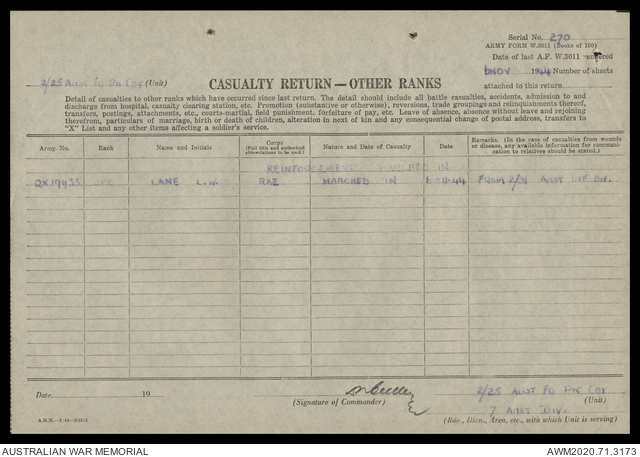 Serial No. 270
ARMY FORM W.3011 (Books of 100)
Date of last A.F. W.3011 entered
6 NOV 1944 Number of sheets
attached to this return
2/25 AUST FD PK COY (Unit)
CASUALTY RETURN—OTHER RANKS
Detail of casualties to other ranks which have occurred since last return. The detail should include all battle casualties, accidents, admission to and
discharge from hospital, casualty clearing station, etc. Promotion (substantive or otherwise), reversions, trade groupings and relinquishments thereof,
transfers, postings, attachments, etc., courts-martial, field punishment, forfeiture of pay, etc. Leave of absence, absence without leave and rejoining
therefrom, particulars of marriage, birth or death of children, alteration in next of kin and any consequential change of postal address, transfers to
"X" List and any other items affecting a soldier's service.
Army No. Rank Name and Initials Corps (Full title and authorised abbreviations to be used.) Nature and Date of Casualty Date Remarks. (In the case of casualties from wounds or disease, any available information for communication to relatives should be stated.)
REINFORCEMENT MARCHED IN
QX19435 SPR LANE L. RAE MARCHED IN 6-11-44 FROM AUST INF BN.
Date 19
(Signature of Commander)
2/25 AUST FD PK COY
(Unit)
7 AUST DIV.
(Bde., Divn., Area, etc., with which Unit is serving)
AUSTRALIAN WAR MEMORIAL
AWM2020.71.3173